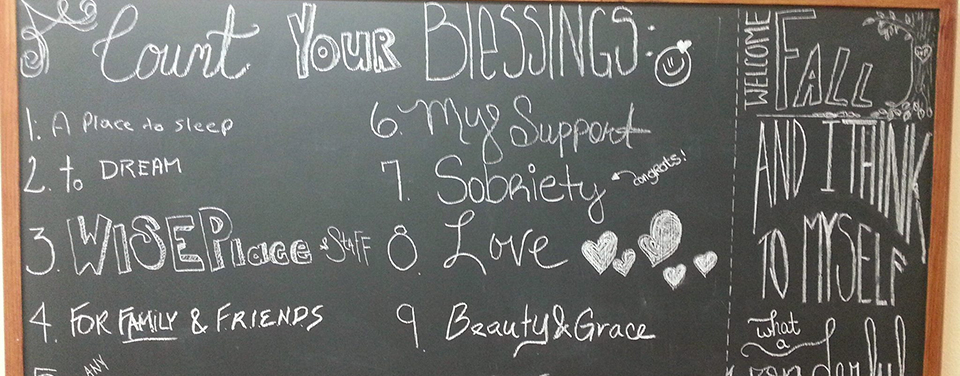 Count Your Blessings:
1. A Place to sleep
2. to DREAM
3. WISEPlace & STAFF
4. FOR FAMILY & FRIENDS
5. ANY
6. My Support
7. Sobriety
congrats!
8 Love
9. Beauty & Grace
WELCOME
FALL
AND I THINK
TO MYSELF
what
a
wonderful